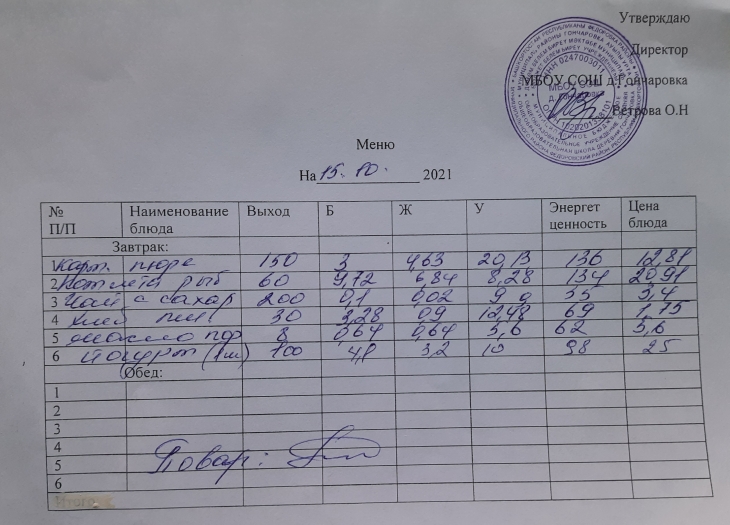 Утверждаю
Директор
МБОУ СОШ д.Гончаровка
Петрова О.Н
Меню
На 15.10. 2021
№ П/П Наименование блюда Выход Б Ж У Энергет ценность Цена блюда
Завтрак:
1 Карт. пюре 150 3 4,63 20,13 136 12,81
2 Котлета рыб 60 9,72 6,84 8,28 134 20,91
3 Чай с сахар 200 0,1 0,02 9,9 35 3,4
4 Хлеб пш 30 2,28 0,9 12,48 69 1,75
5 масло пор 8 0,64 0,64 5,6 62 5,6
6 Йогурт (1шт) 100 4,1 3,2 10 98 25
Обед:
1
2
3
4
5
6
Повар:
Итого: